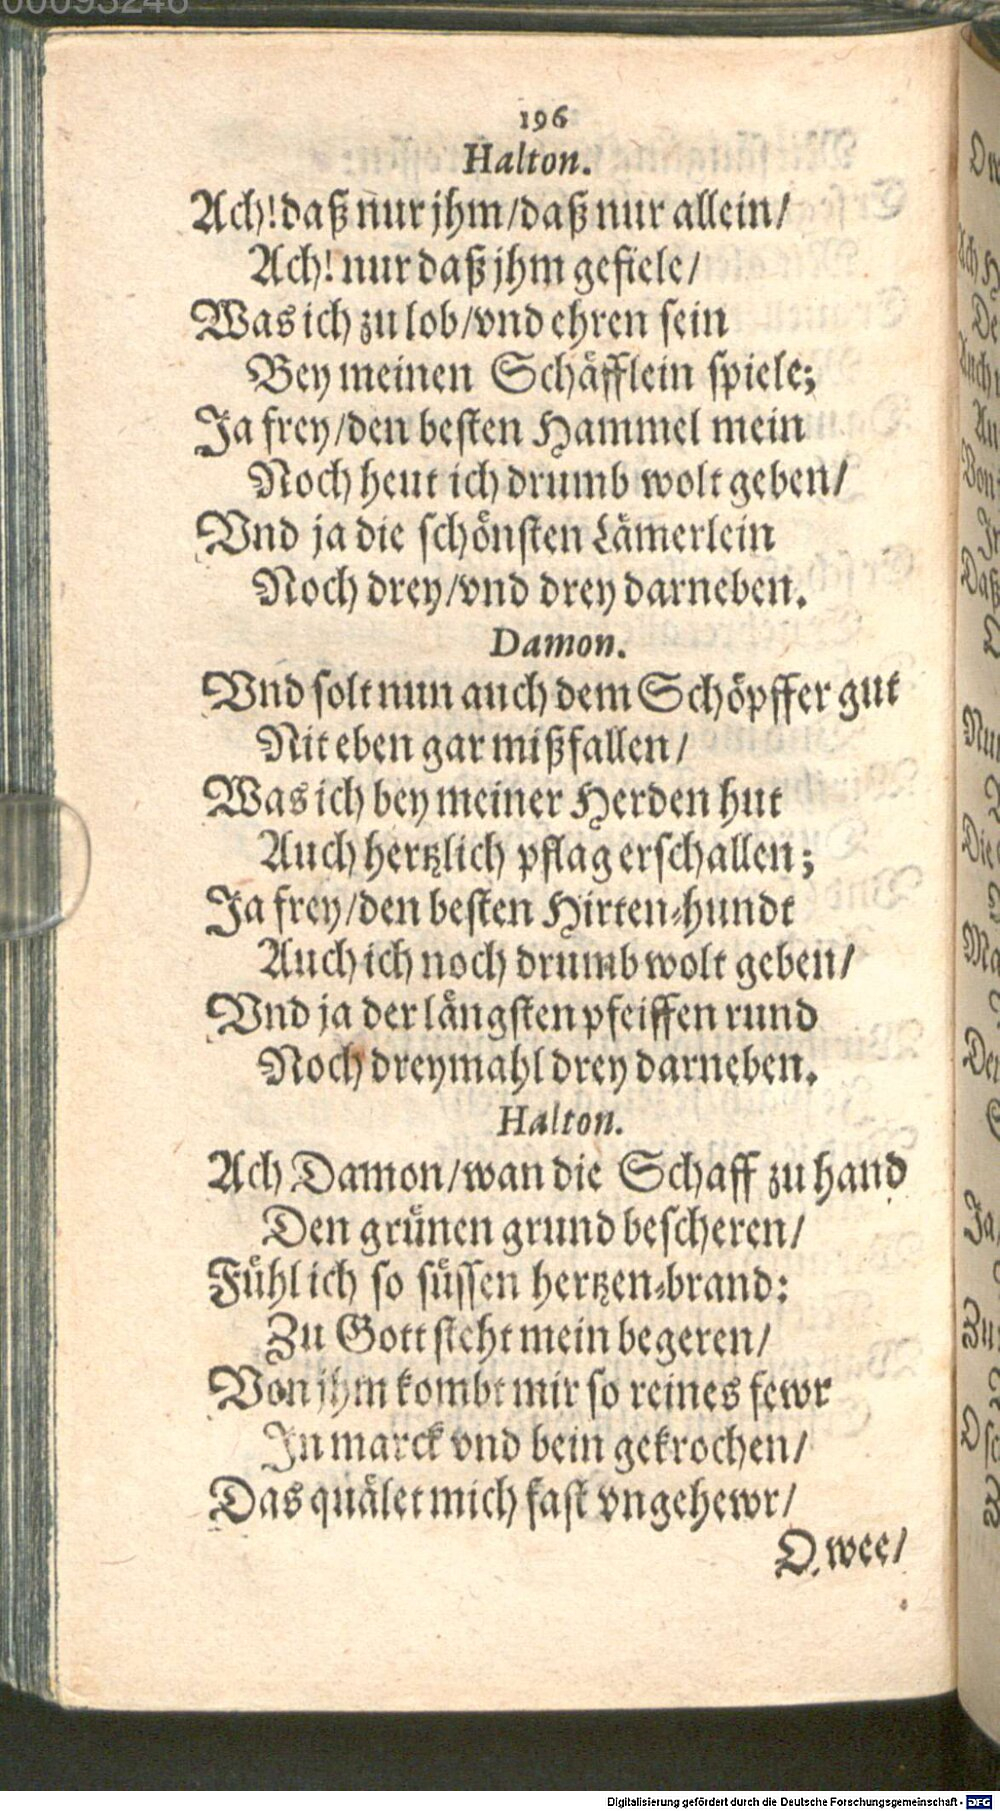 00093246
196
Halton.
Ach! daß nur jhm/ daß nur allein/
Ach! nur daß jhm gefiele/
Was ich zu lob/ vnd ehren sein
Bey meinen Schäfflein spiele;
Ja frey/ den besten Hammel mein
Noch heut ich drumb wolt geben/
Vnd ja die schönsten Lämerlein
Noch drey/ vnd drey darneben.
Damon.
Vnd solt nun auch dem Schöpffer gut
Nit eben gar mißfallen/
Was ich bey meiner Herden hut
Auch hertzlich pflag erschallen;
Ja frey/ den besten Hirten-hundt
Auch ich noch drumb wolt geben/
Vnd ja der längsten pfeiffen rund
Noch dreymahl drey darneben.
Halton.
Ach Damon/ wan die Schaff zu hand
Den grünen grund bescheren/
Fühl ich so süssen hertzen-brand:
Zu Gott steht mein begeren/
Von jhm kombt mir so reines fewr
In marck vnd bein gekrochen/
Das quälet mich fast vngehewr/
O wee/
Digitalisierung gefördert durch die Deutsche Forschungsgemeinschaft - DFG